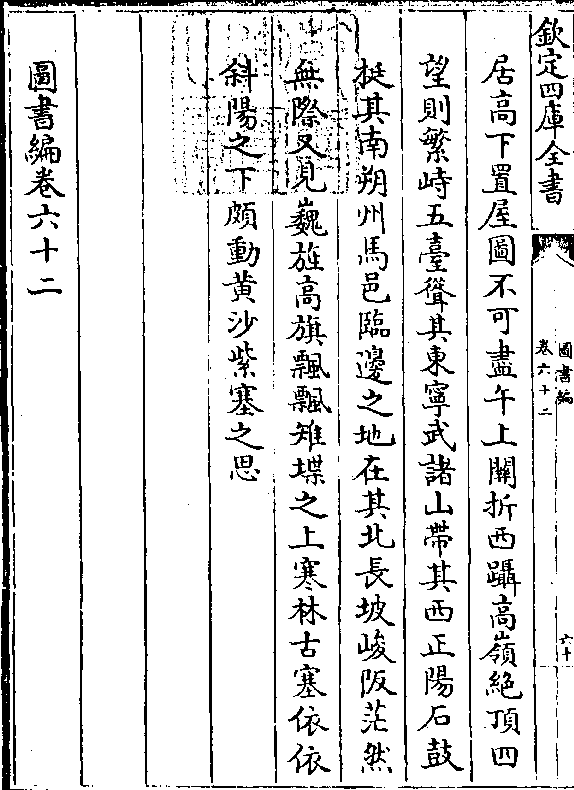 欽定四庫全書
圖書編
卷六十二
六十
居高下置屋圖不可盡午上關折西躡高嶺絶頂四
望則繁峙五臺聳其東寧武諸山帶其西正陽石鼓
挺其南朔州馬邑臨邊之地在其北長坡峻阪茫然
無際又見巍旌高旗飄飄雉堞之上寒林古塞依依
斜陽之下頗動黄沙紫塞之思
圖書編卷六十二